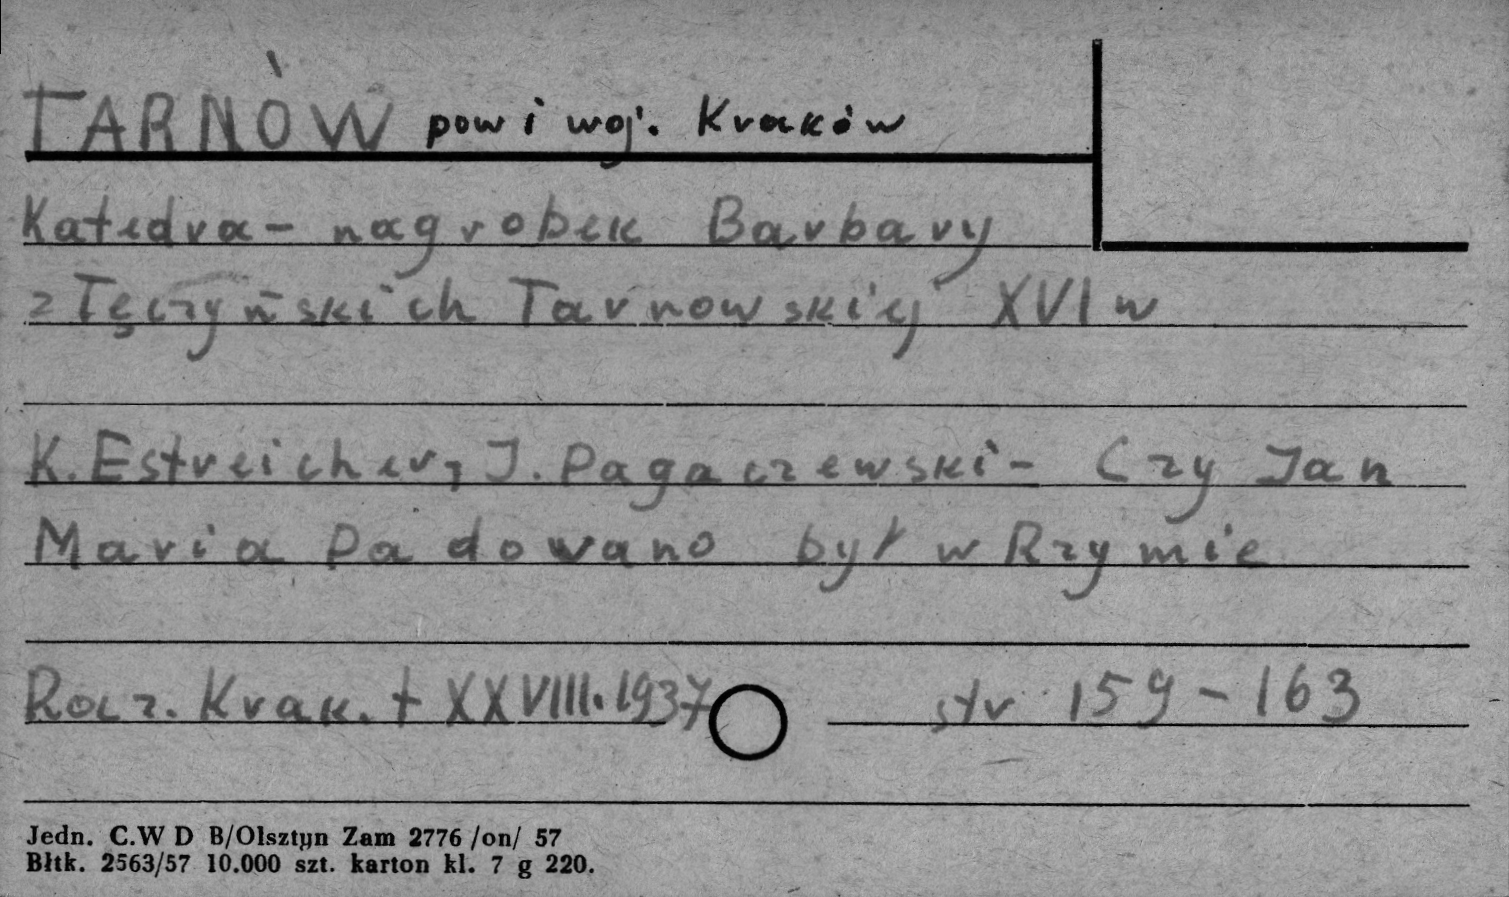 TARNÓW pow i woj. Kraków
Katedra - nagrobek Barbary
z Tęczyńskich Tarnowskiej XVI w
K. Estreicher, J. Pagaczewski - Czy Jan
Maria Padowano był w Rzymie
Rocz. Krak. t XXVIII. 1937 str 159-163
Jedn. C.W D B/Olsztyn Zam 2776 /on/ 57
Błtk. 2563/57 10.000 szt. karton kl. 7 g 220.